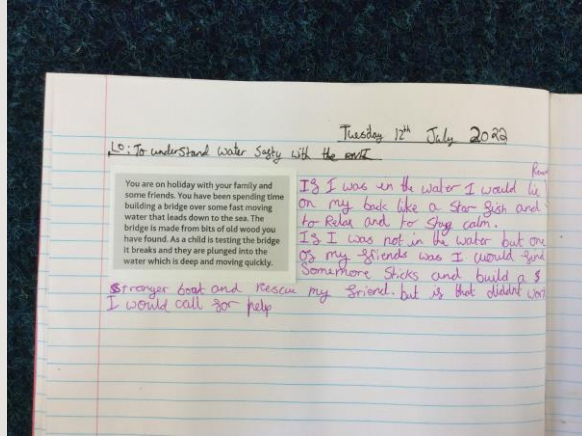 Tuesday 12th July 2022
LO: To understand water Safty with the RNLI
You are on holiday with your family and
some friends. You have been spending time
building a bridge over some fast moving
water that leads down to the sea. The
bridge is made from bits of old wood you
have found. As a child is testing the bridge
it breaks and they are plunged into the
water which is deep and moving quickly.
If I was in the water I would lie
on my back like a Star fish and
to Relax and to Stay calm.
If I was not in the water but one
of my friends was I would find
Somemore Sticks and build a
stronger boat and rescue my friend. but if that diddnt
I would call for help